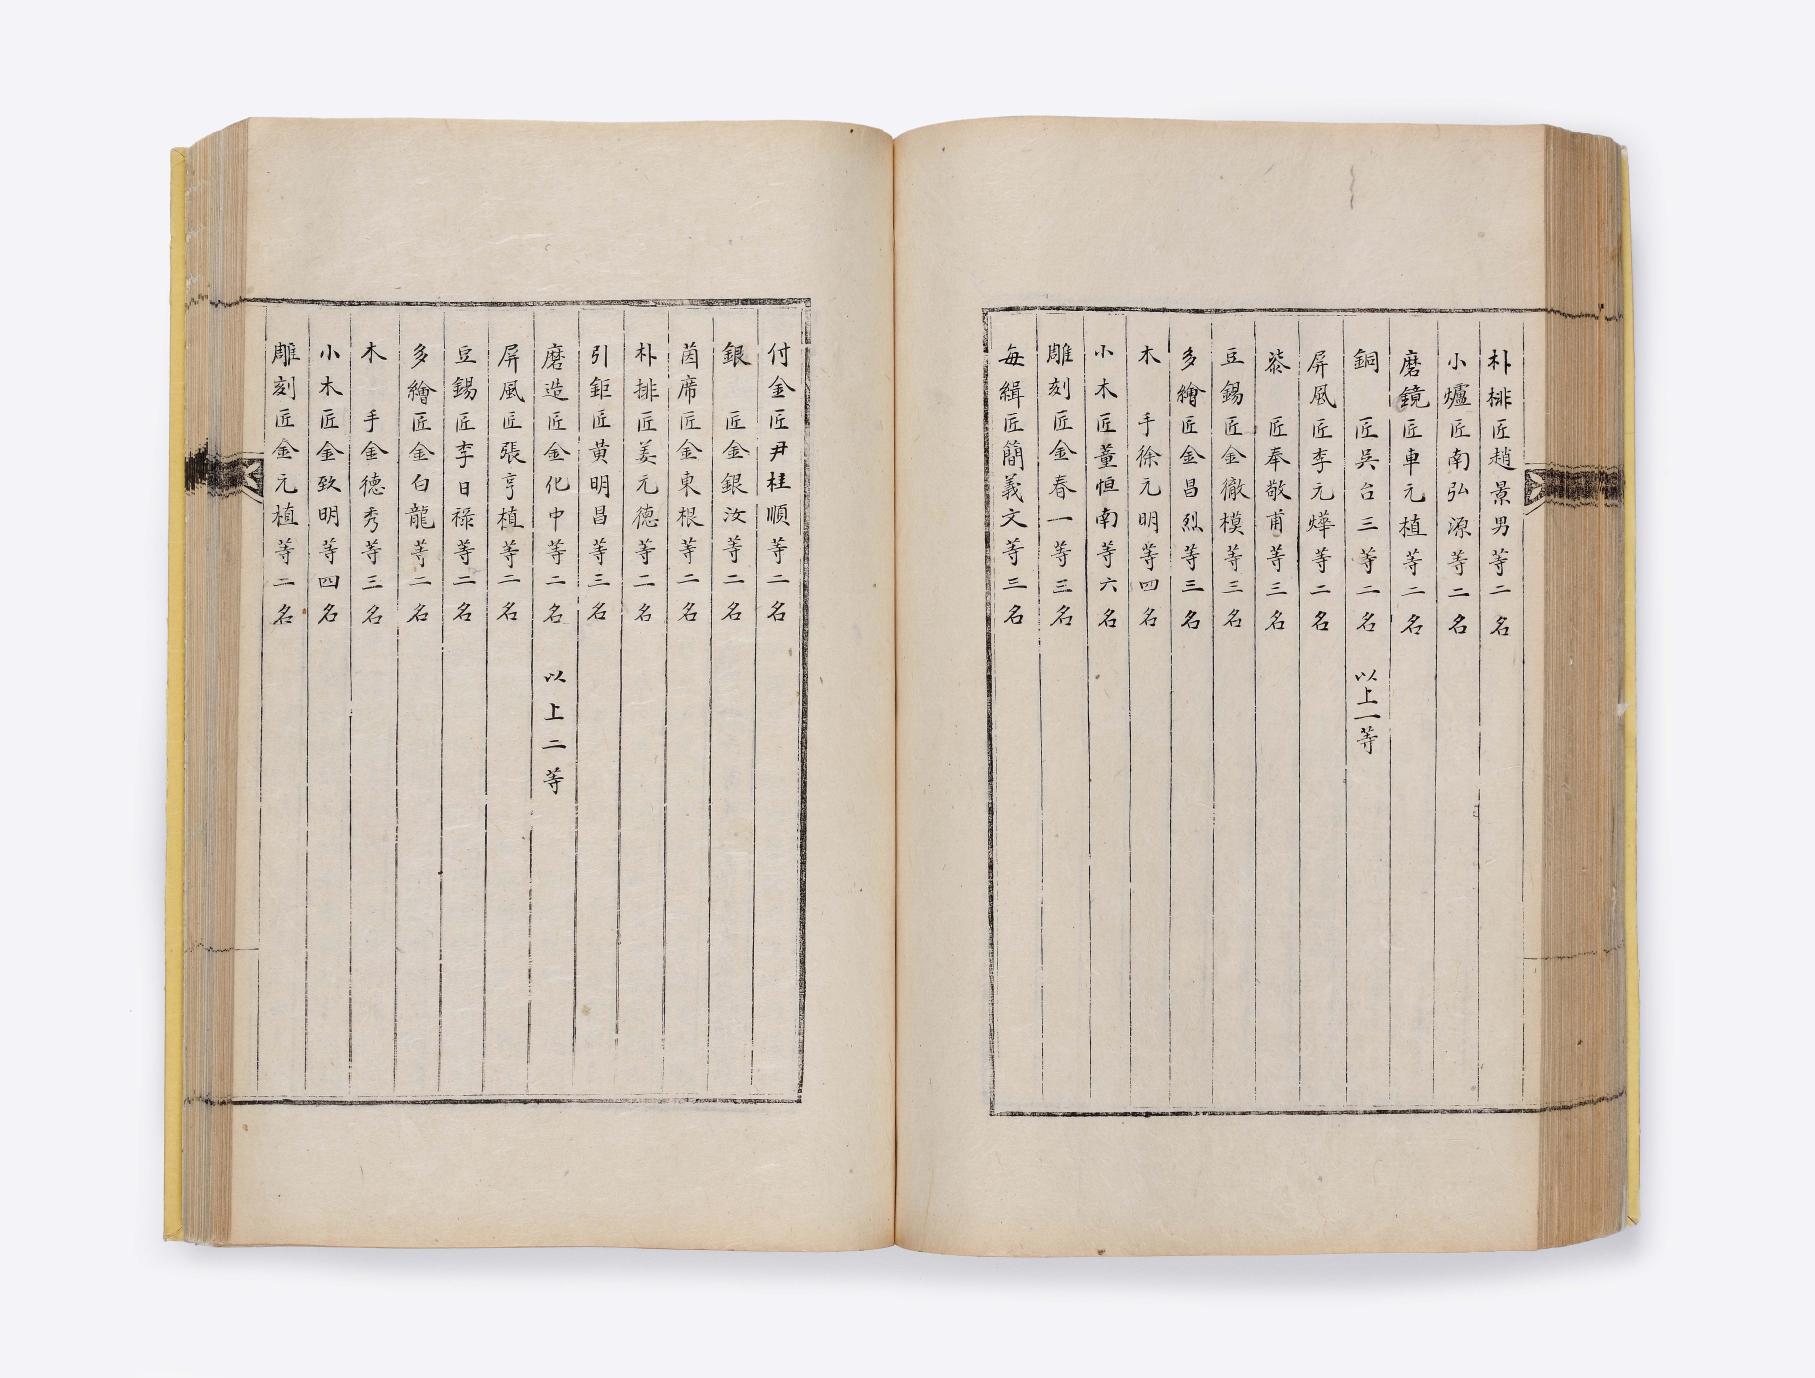 朴排匠趙景男等二名
小爐匠南弘源等二名
磨鏡匠車元植等二名
銅匠吳台三等二名 以上一等
屏風匠李元燁等二名
漆匠奉敬甫等三名
豆錫匠金徹模等三名
多繪匠金昌烈等三名
木手徐元明等四名
小木匠董恒南等六名
雕刻匠金春一等三名
每緝匠簡義文等三名
付金匠尹桂順等二名
銀匠金銀汝等二名
茵席匠金東根等二名
朴排匠姜元德等二名
引鉅匠黃明昌等三名
磨造匠金化中等二名 以上二等
屏風匠張亨植等二名
豆錫匠李日祿等二名
多繪匠金白龍等二名
木手金德秀等三名
小木匠金致明等四名
雕刻匠金元植等二名